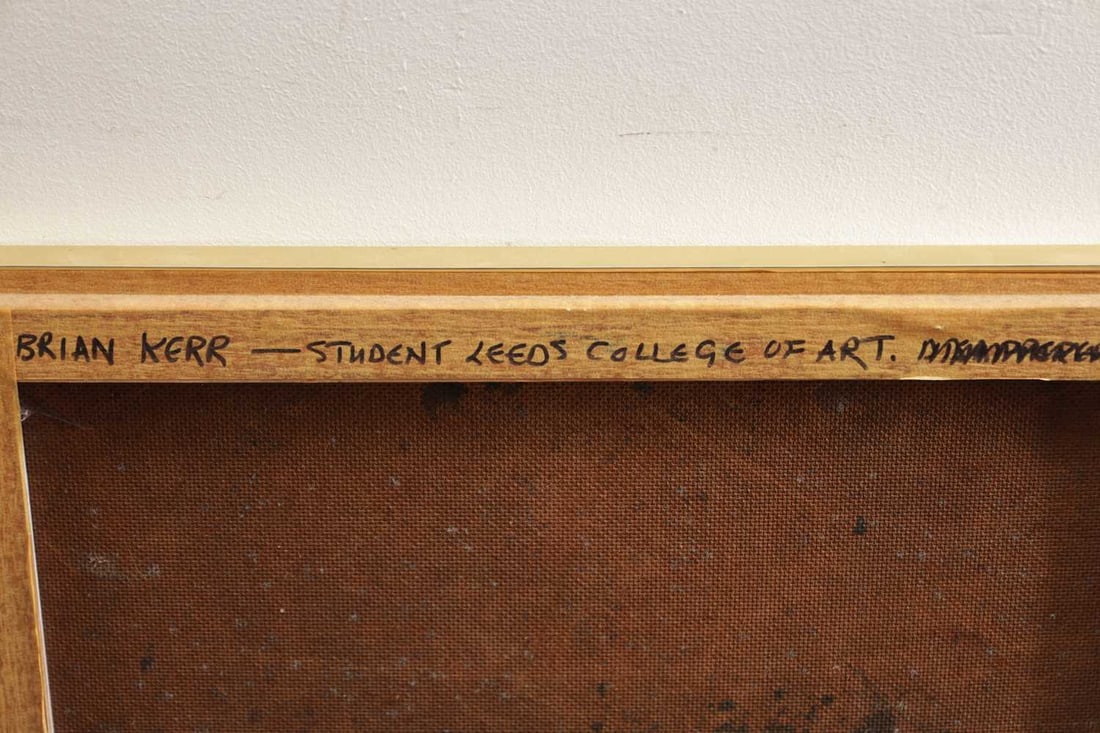 BRIAN KERR — STUDENT LEEDS COLLEGE OF ART.